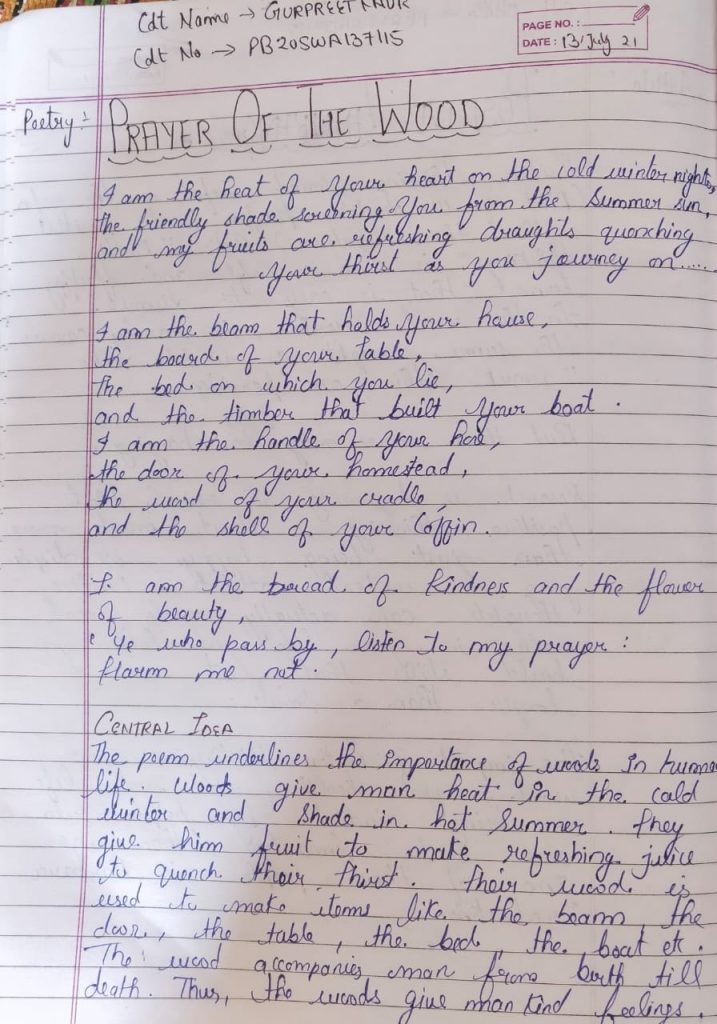 Cdt Name → GURPREET KAUR
Cdt No → PB20SWA137115
PAGE NO. :
DATE : 13/July 21
Poetry :
PRAYER OF THE WOOD
I am the heat of your heart on the cold winter nights,
the friendly shade screening you from the summer sun,
and my fruits are refreshing draughts quenching
your thirst as you journey on.....
I am the beam that holds your house,
the board of your table,
the bed on which you lie,
and the timber that built your boat.
I am the handle of your hoe,
the door of your homestead,
the wood of your cradle,
and the shell of your Coffin.
I am the bread of kindness and the flower
of beauty,
'Ye who pass by, listen to my prayer :
Harm me not.
CENTRAL IDEA
The poem underlines the importance of woods in human
life. Woods give man heat in the cold
winter and shade in hot summer. they
give him fruit to make refreshing juice
to quench their thirst. their wood is
used to make items like the beam the
door, the table, the bed, the boat etc.
The wood accompanies man from birth till
death. Thus, the woods give man kind feelings.